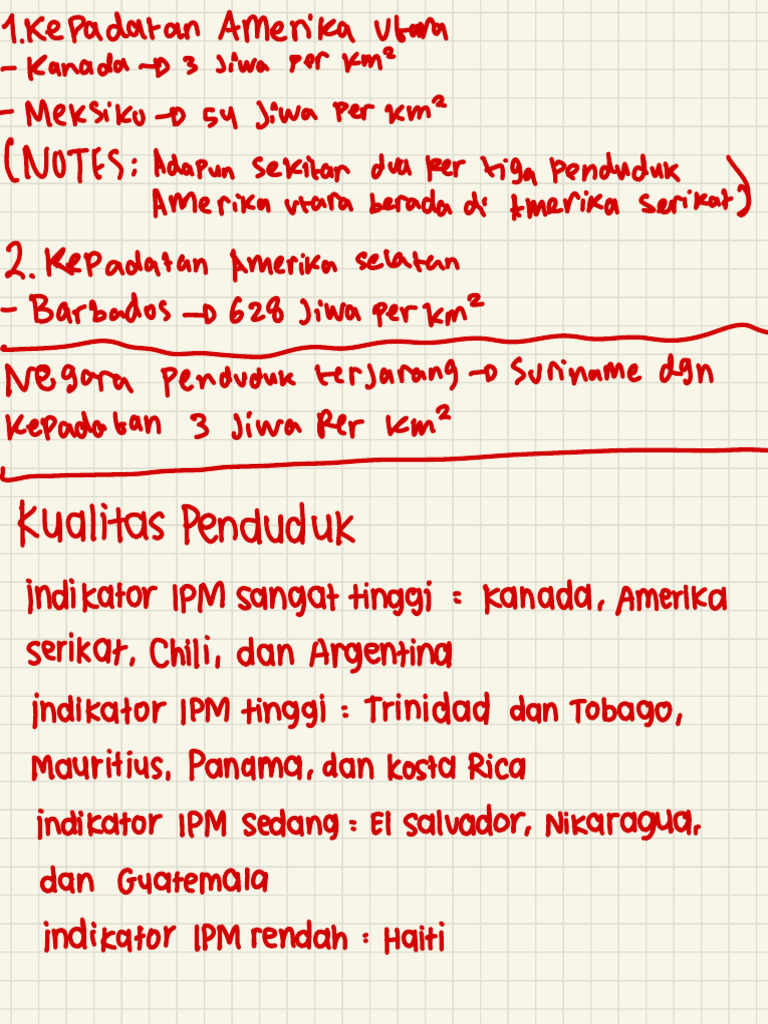 1. Kepadatan Amerika Utara
- Kanada → 3 Jiwa per km²
- Meksiko → 54 Jiwa per km²
(NOTES: Adapun sekitar dua per tiga penduduk
Amerika utara berada di Amerika serikat)
2. Kepadatan Amerika selatan
- Barbados → 628 Jiwa per km²
Negara penduduk terjarang → Suriname dgn
kepadatan 3 Jiwa Per km²
Kualitas Penduduk
indikator IPM sangat tinggi : kanada, Amerika
serikat, Chili, dan Argentina
indikator IPM tinggi : Trinidad dan Tobago,
Mauritius, Panama, dan kosta Rica
indikator IPM sedang : El salvador, Nikaragua,
dan Guatemala
indikator IPM rendah : Haiti